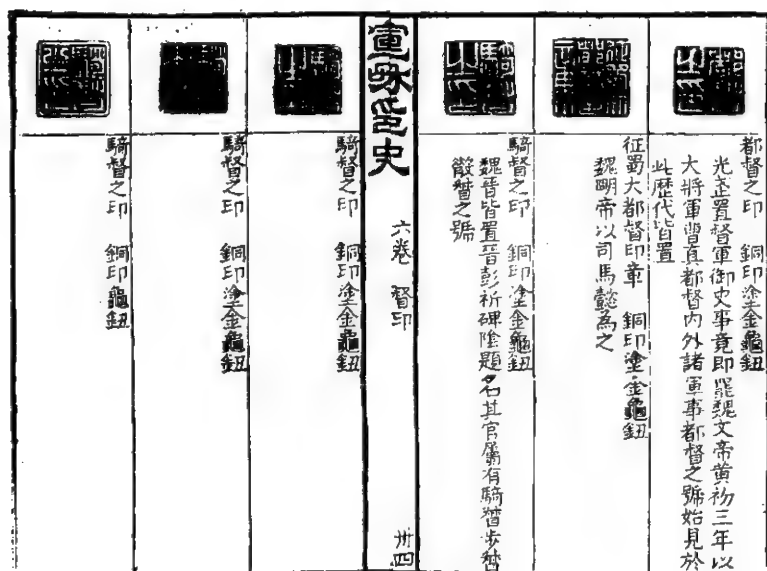 都督之印　銅印塗金龜鈕
光武置督軍御史事竟即罷魏文帝黃初三年以
大將軍曹真都督內外諸軍事都督之號始見於
此歷代皆置
征蜀大都督印章　銅印塗金龜鈕
魏明帝以司馬懿為之
騎督之印　銅印塗金龜鈕
魏晉皆置晉彭祈碑陰題名其官屬有騎督步督
散督之號
宣和印史　六卷　督印　卅四
騎督之印　銅印塗金龜鈕
騎督之印　銅印塗金龜鈕
騎督之印　銅印龜鈕